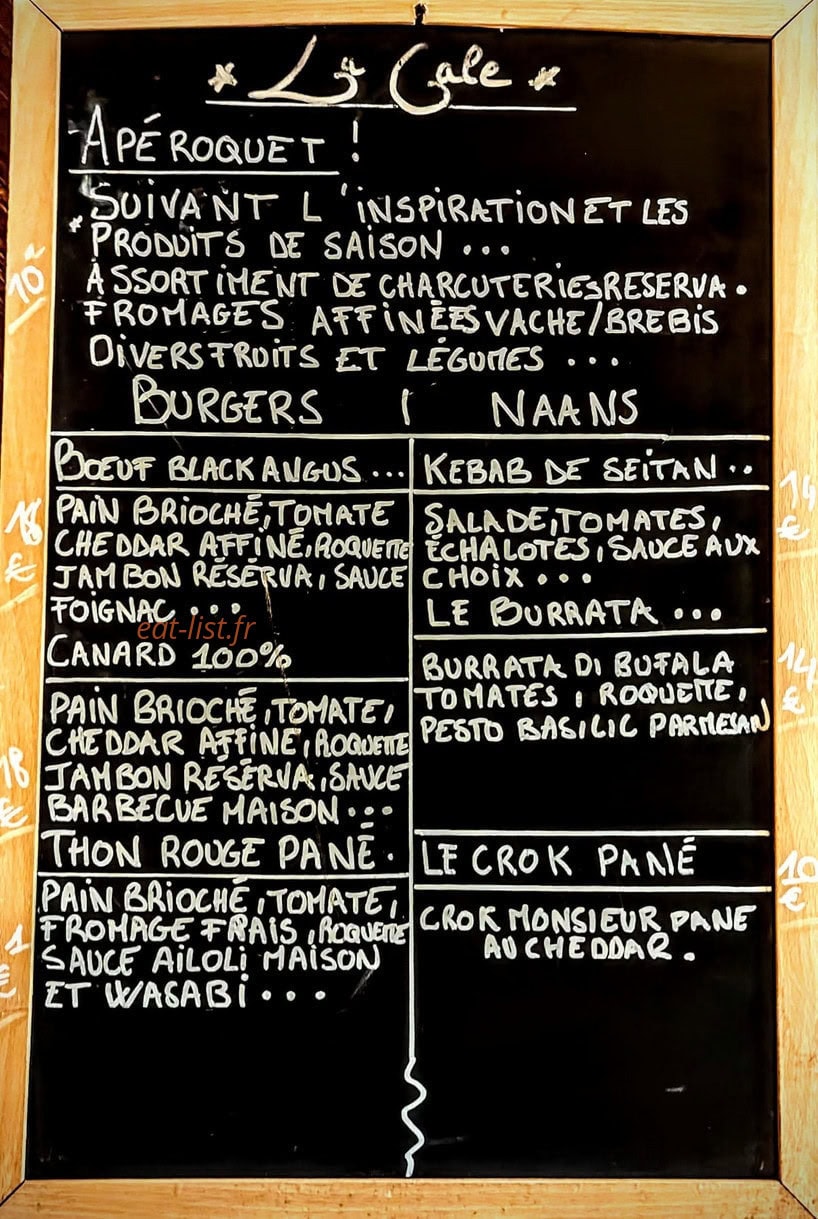 * La Cale *
APÉROQUET !
SUIVANT L'INSPIRATION ET LES
* PRODUITS DE SAISON ...
ASSORTIMENT DE CHARCUTERIES RESERVA.
FROMAGES AFFINÉES VACHE/BREBIS
DIVERS FRUITS ET LÉGUMES ...
10
BURGERS | NAANS
BŒUF BLACK ANGUS ...
PAIN BRIOCHÉ, TOMATE
CHEDDAR AFFINÉ, ROQUETTE
JAMBON RÉSÉRVA, SAUCE
FOIGNAC ...
18
€
eat-list.fr
CANARD 100%
PAIN BRIOCHÉ, TOMATE,
CHEDDAR AFFINÉ, ROQUETTE
JAMBON RÉSÉRVA, SAUCE
BARBECUE MAISON ...
18
€
THON ROUGE PANÉ.
PAIN BRIOCHÉ, TOMATE,
FROMAGE FRAIS, ROQUETTE
SAUCE AILOLI MAISON
ET WASABI ...
1
€
KEBAB DE SEITAN ..
SALADE, TOMATES,
ÉCHALOTES, SAUCE AUX
CHOIX ...
14
€
LE BURRATA ...
BURRATA DI BUFALA
TOMATES, ROQUETTE,
PESTO BASILIC PARMESAN
14
€
LE CROK PANÉ
CROK MONSIEUR PANE
AU CHEDDAR.
10
€